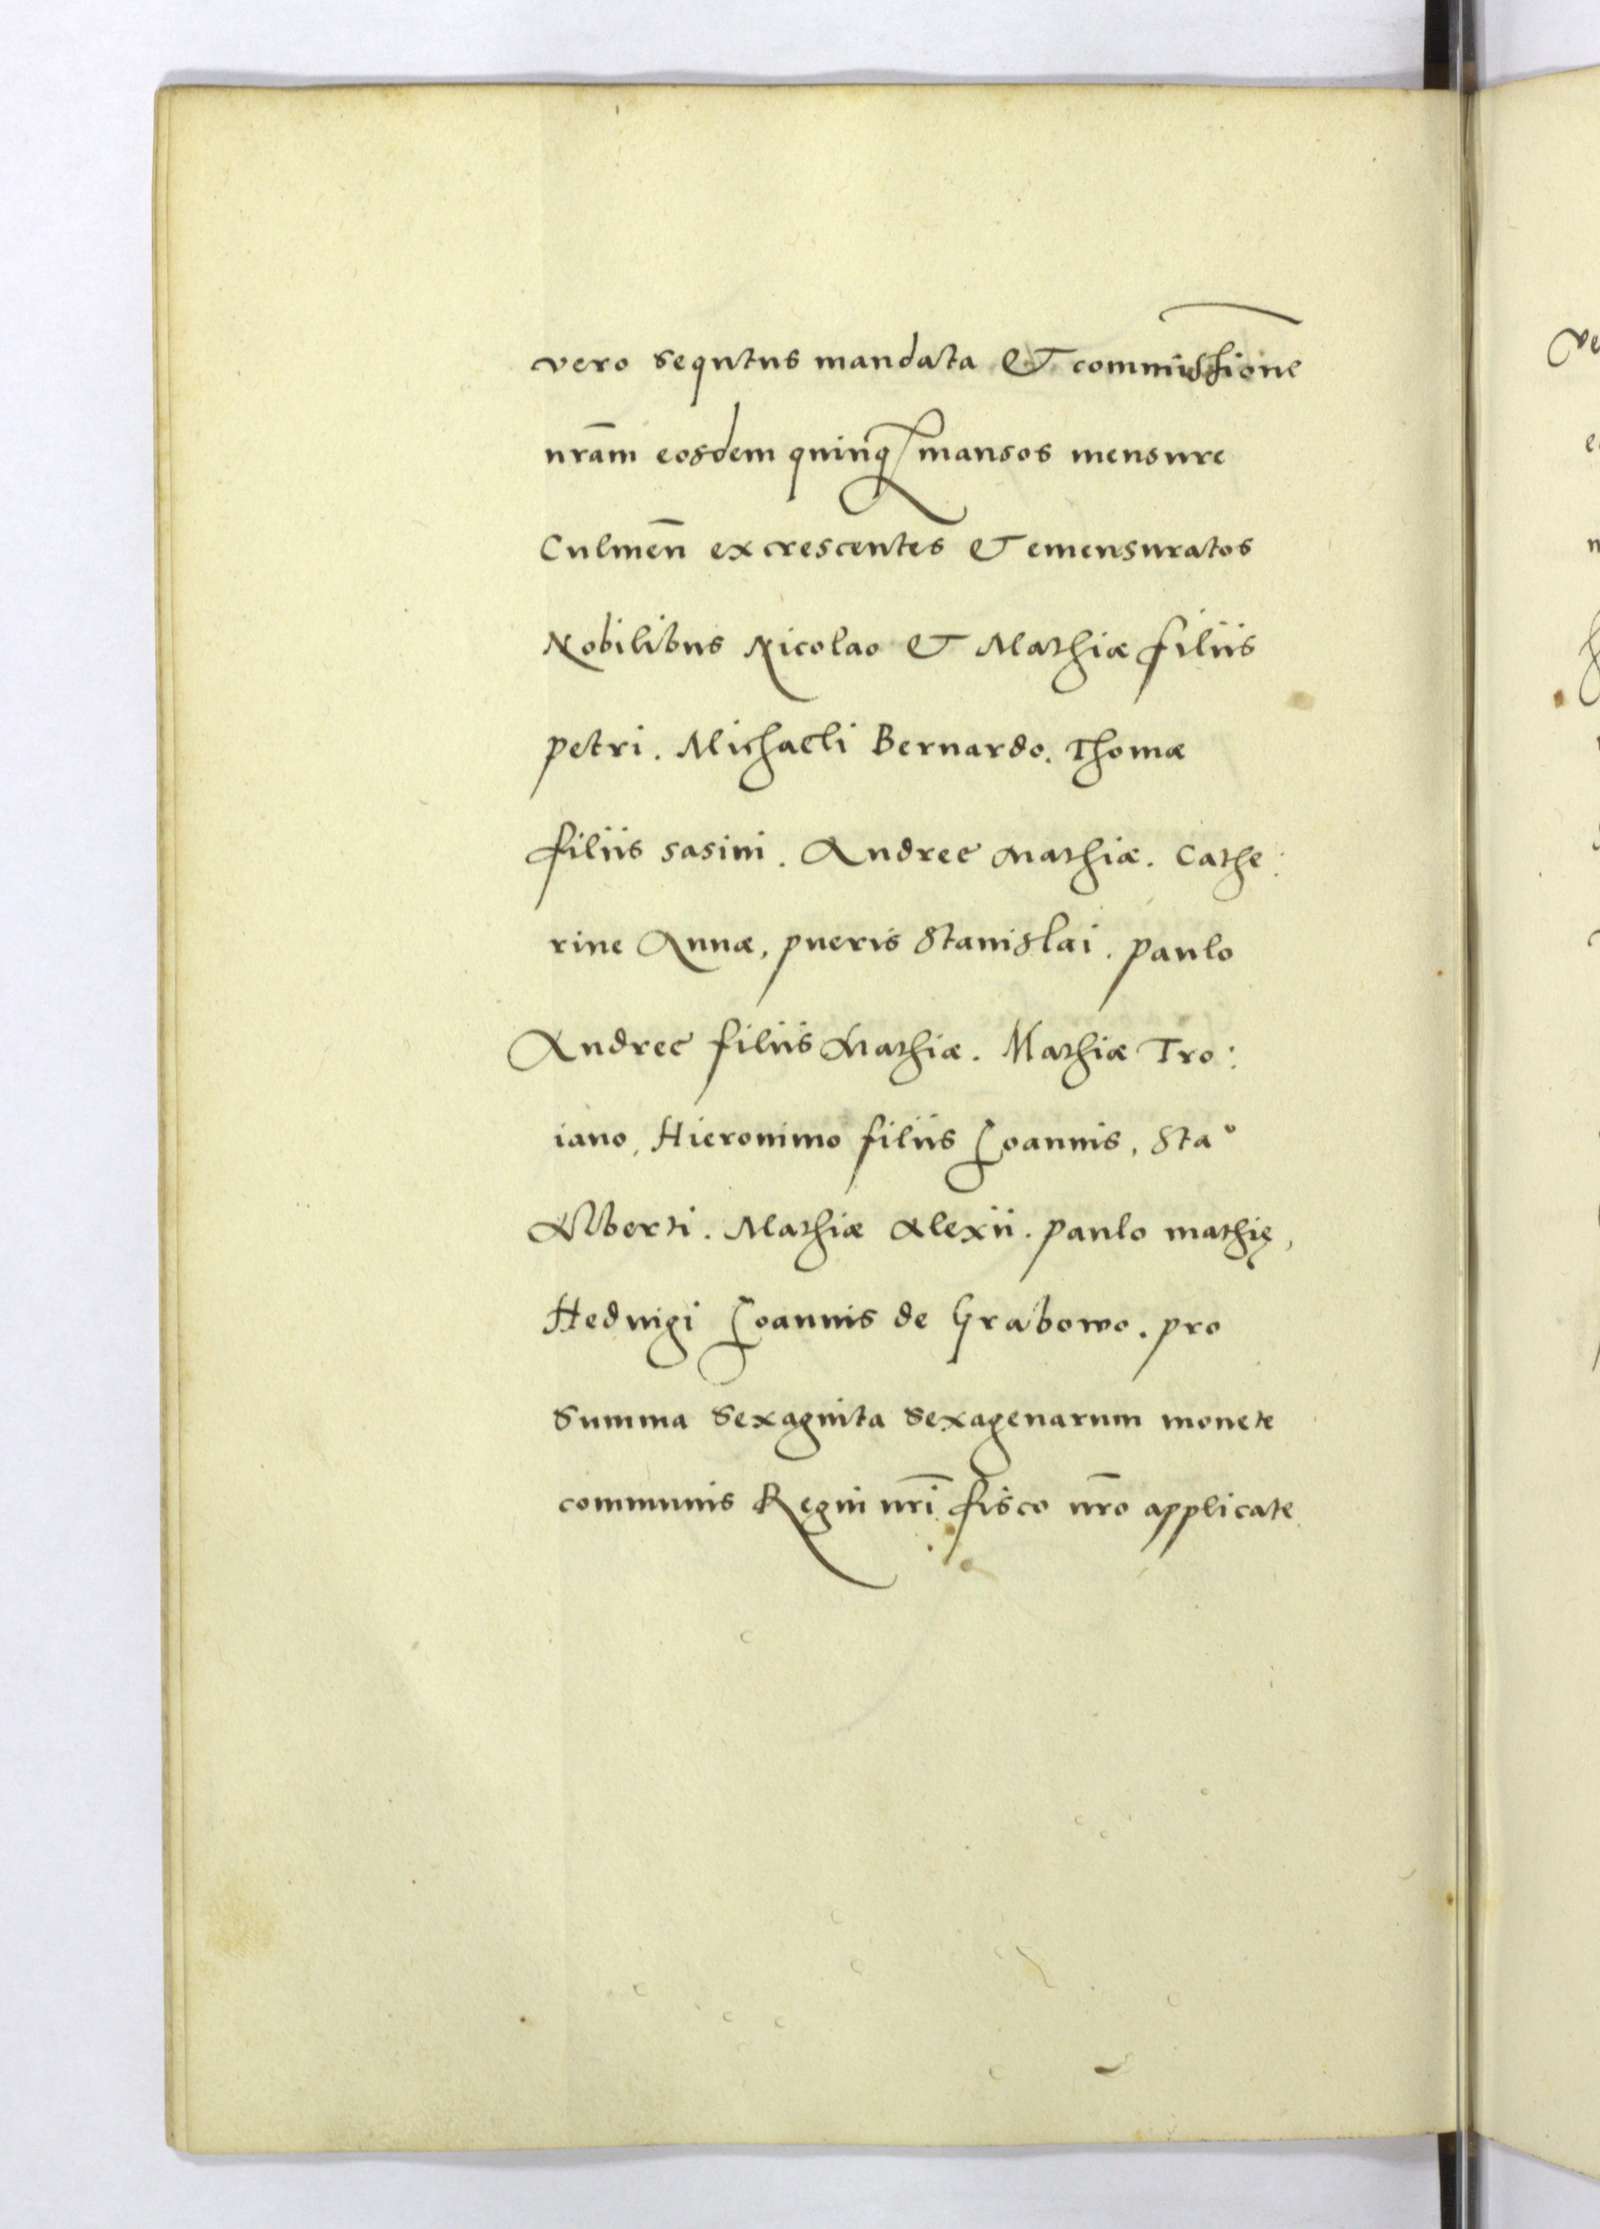 vero sequtus mandata & commissione
nr̄am eosdem quinq mansos mensure
Culmen̄ excrescentes & emensuratos
Nobilibus Nicolao & Mathiæ filiis
petri. Michaeli Bernardo. Thomæ
filiis sasini. Andree Mathiæ. Cathe:
rine Annæ, pueris Stanislai. paulo
Andree filiis Mathiæ. Mathiæ Tro:
iano, Hieronimo filiis Joannis, Sta°
Alberti. Mathiæ Alexii. paulo mathię,
Hedvigi Joannis de Grabowo. pro
Summa Sexaginta Sexagenarum monete
communis Regni nr̄i fisco nr̄o applicate